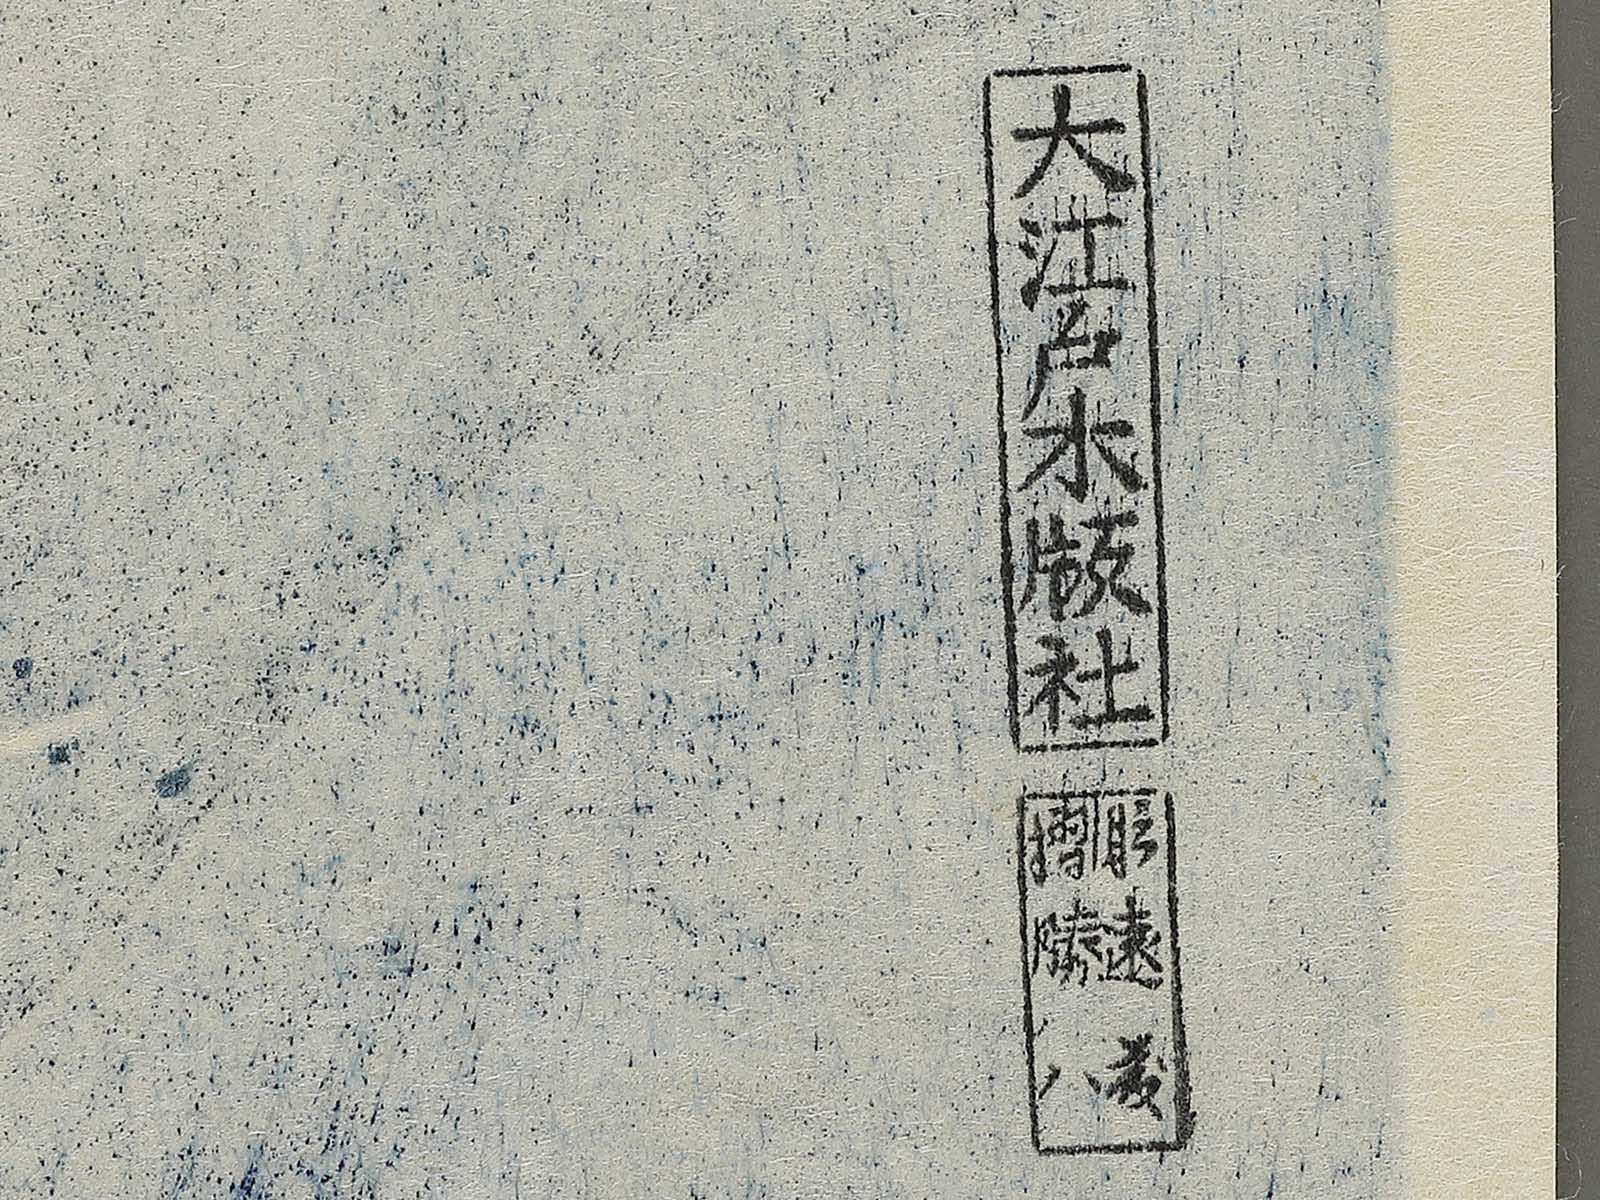 大江戸木版社
彫遠藤
摺勝八